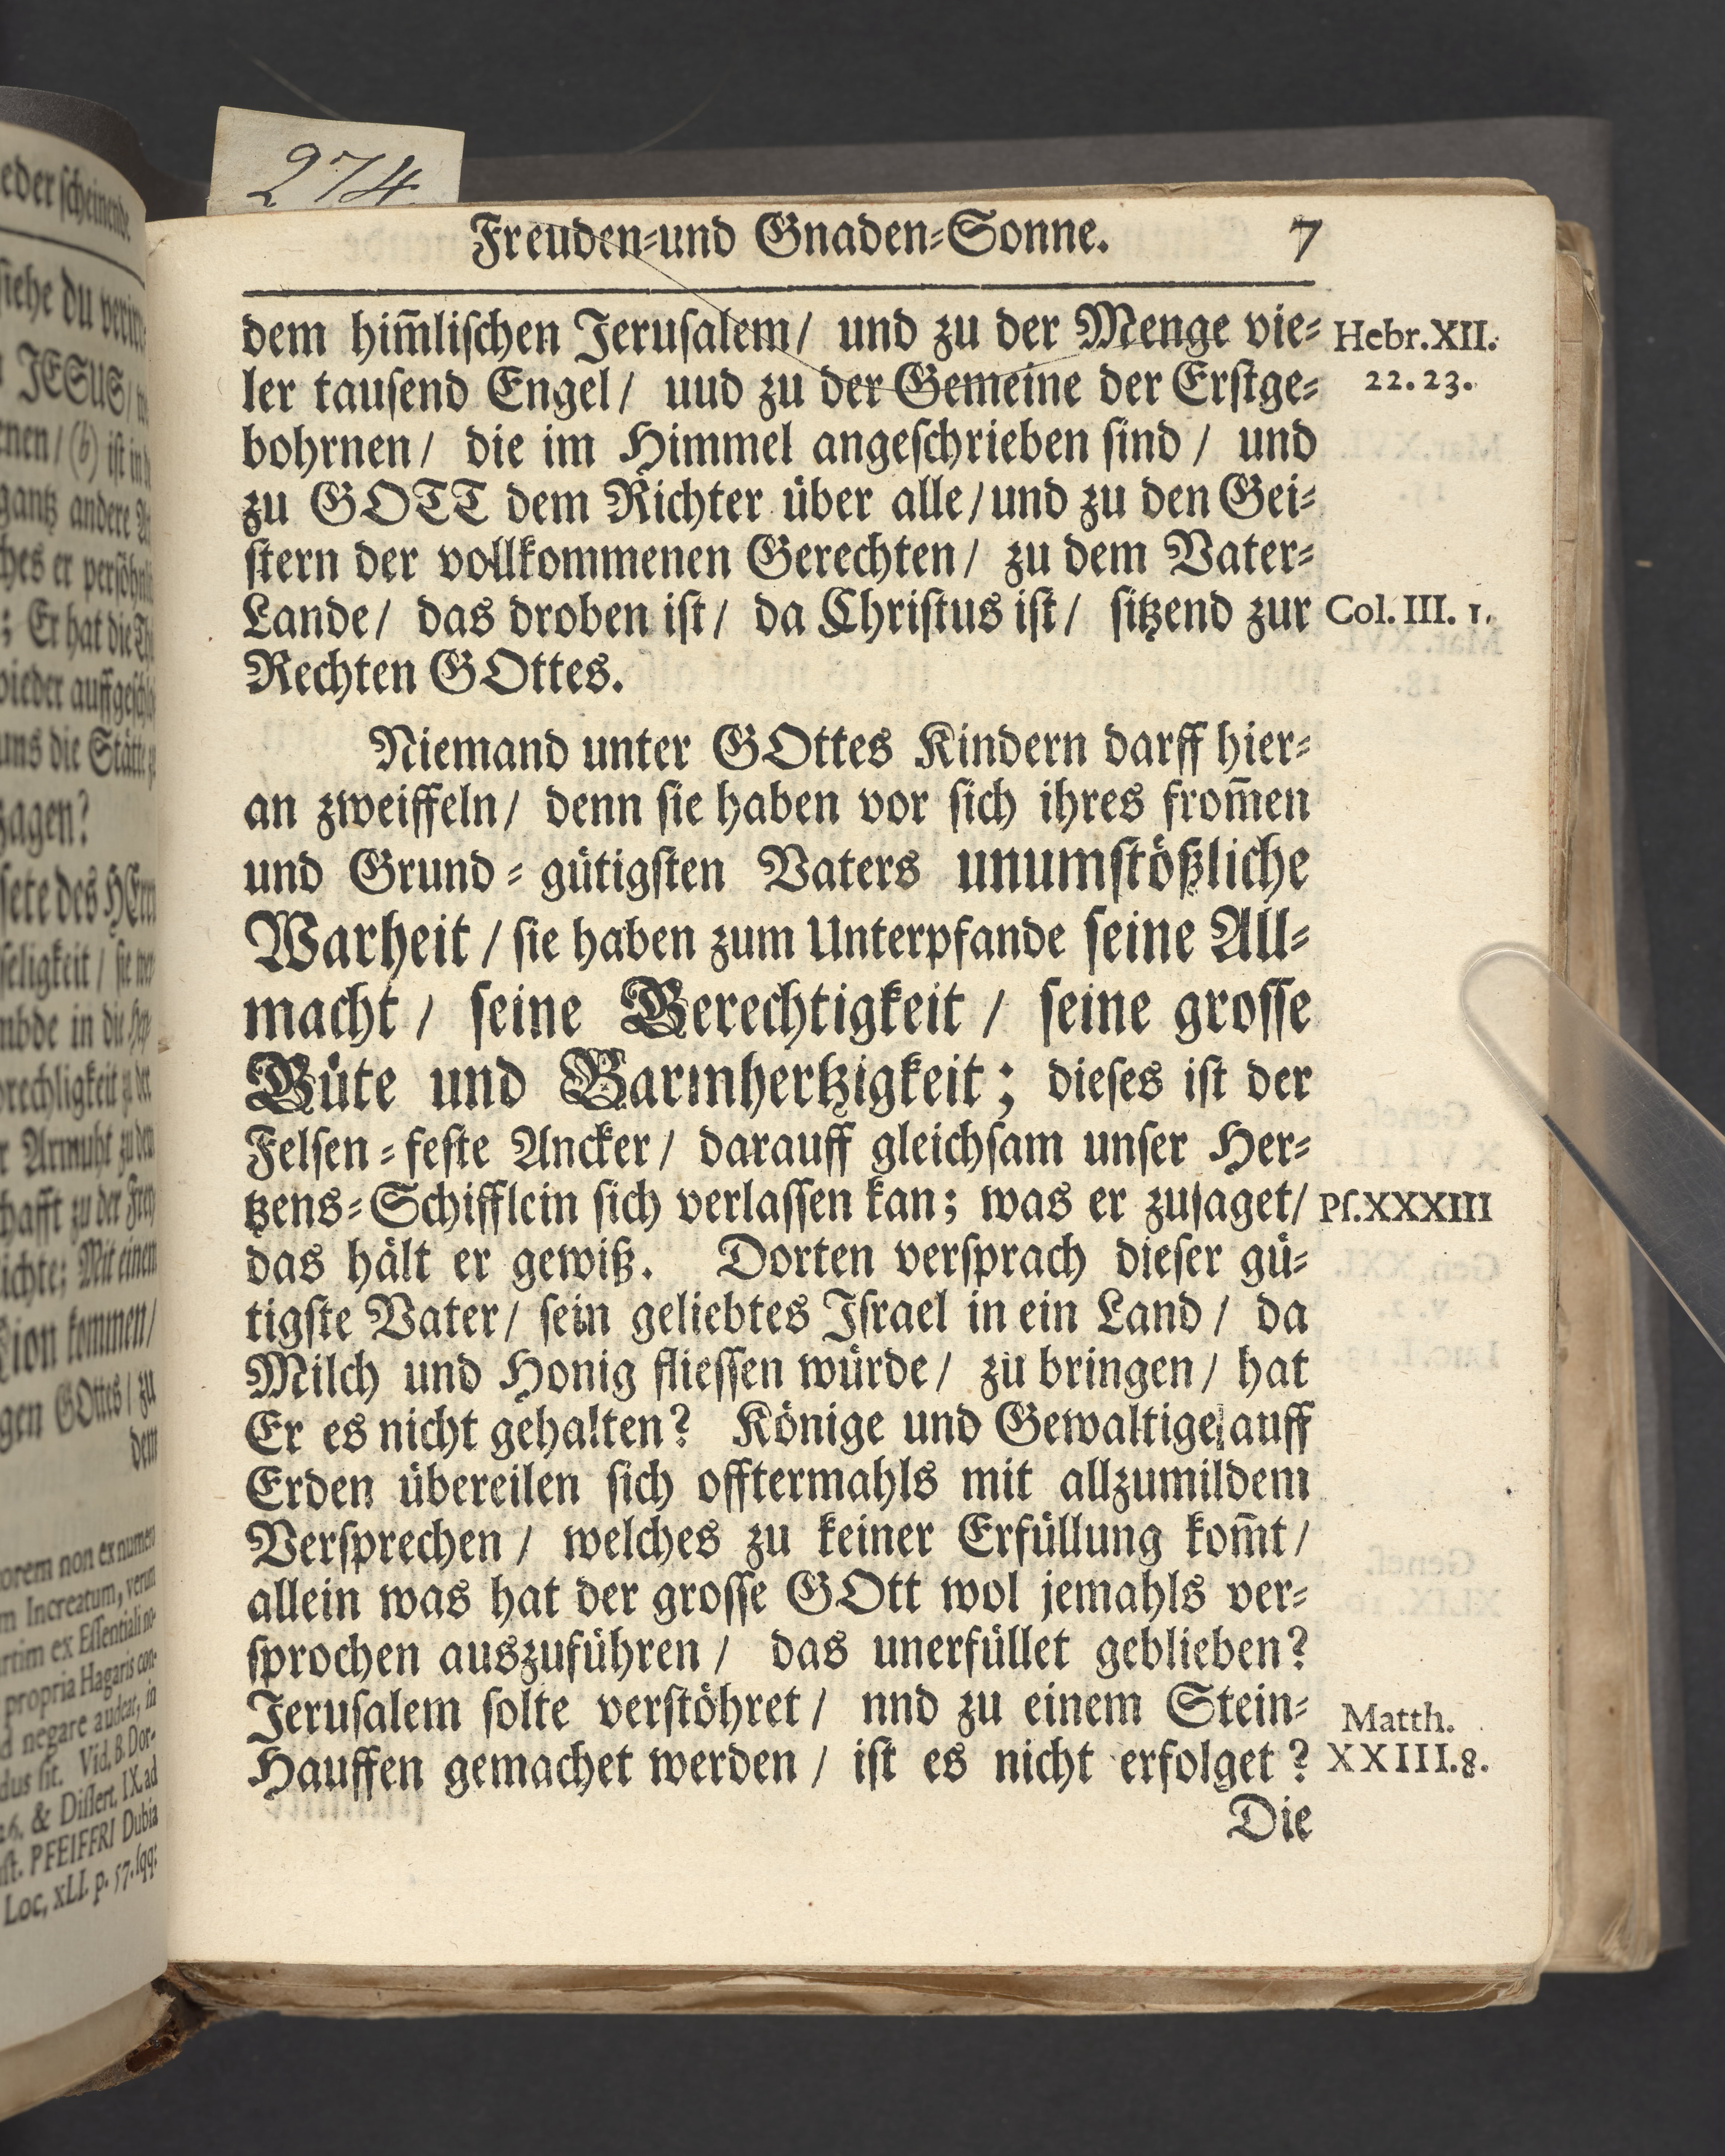 274
Freuden-und Gnaden-Sonne. 7
dem him̃lischen Jerusalem/ und zu der Menge vie-
Hebr.XII.
22.23.
ler tausend Engel/ uud zu der Gemeine der Erstge-
bohrnen/ die im Himmel angeschrieben sind/ und
zu GOTT dem Richter über alle/und zu den Gei-
stern der vollkommenen Gerechten/ zu dem Vater-
Lande/ das droben ist/ da Christus ist/ sitzend zur
Col. III. 1.
Rechten GOttes.
Niemand unter GOttes Kindern darff hier-
an zweiffeln/ denn sie haben vor sich ihres from̃en
und Grund-gütigsten Vaters unumstößliche
Warheit/ sie haben zum Unterpfande seine All-
macht/ seine Gerechtigkeit/ seine grosse
Güte und Barmhertzigkeit; dieses ist der
Felsen-feste Ancker/ darauff gleichsam unser Her-
tzens-Schifflein sich verlassen kan; was er zusaget/
Ps.XXXIII
das hält er gewiß. Dorten versprach dieser gü-
tigste Vater/ sein geliebtes Israel in ein Land/ da
Milch und Honig fliessen würde/ zu bringen/ hat
Er es nicht gehalten? Könige und Gewaltige auff
Erden übereilen sich offtermahls mit allzumildem
Versprechen/ welches zu keiner Erfüllung kom̃t/
allein was hat der grosse GOtt wol jemahls ver-
sprochen auszuführen/ das unerfüllet geblieben?
Jerusalem solte verstöhret/ nnd zu einem Stein-
Matth.
Hauffen gemachet werden/ ist es nicht erfolget?
XXIII.8.
Die